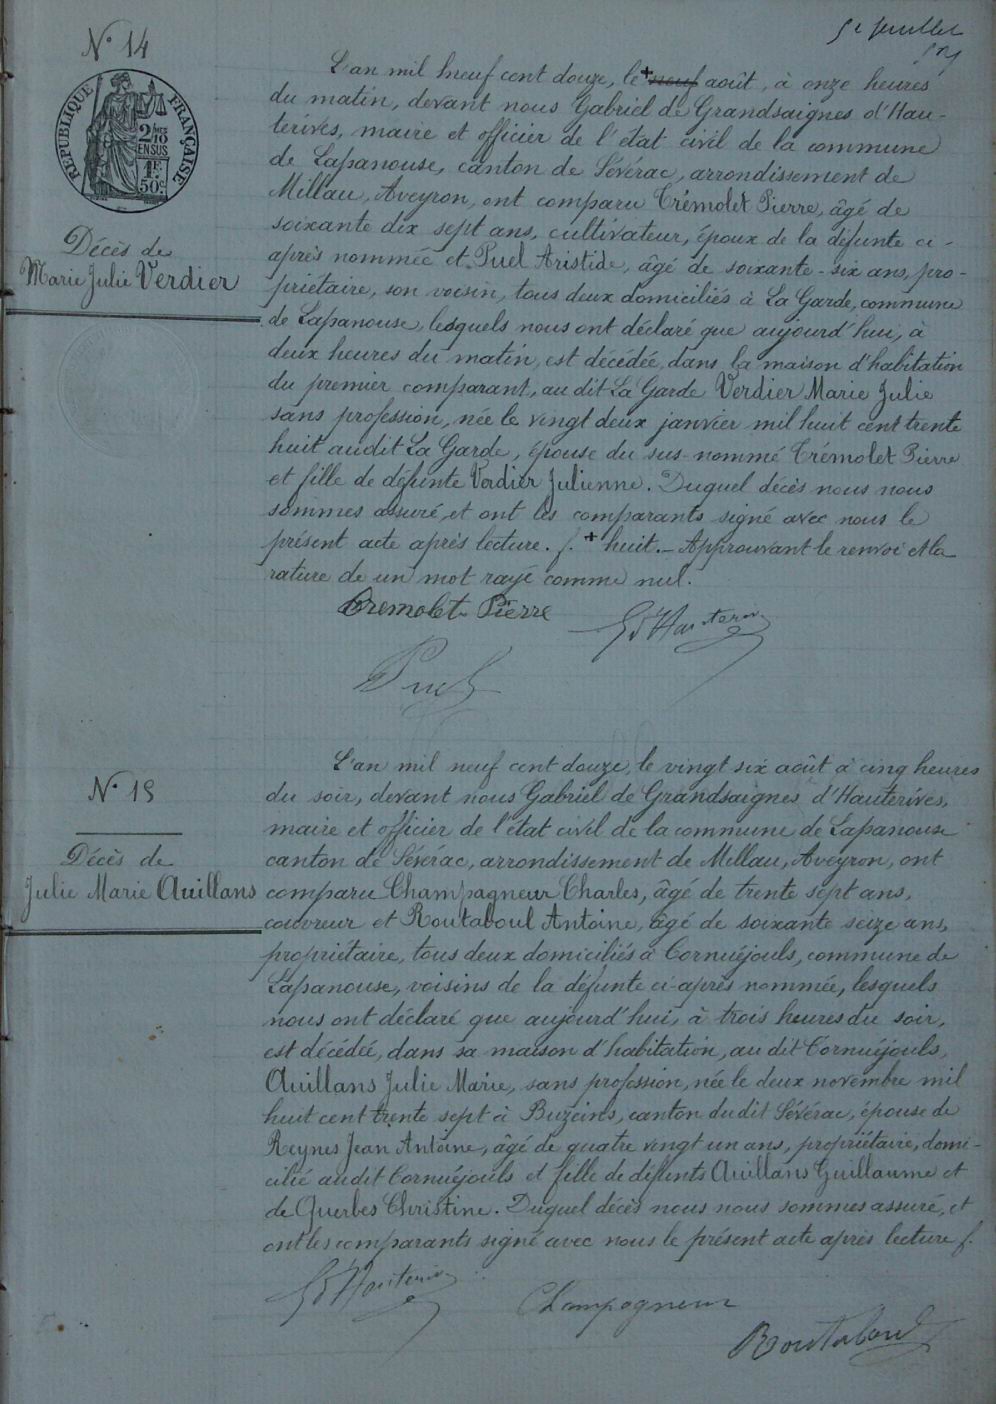 5e feuillet
N° 14
RÉPUBLIQUE FRANÇAISE
2/10
EN SUS
1F
50c
Décès de
Marie Julie Verdier
L'an mil neuf cent douze, le + neuf août, à onze heures
du matin, devant nous Gabriel de Grandsaignes d'Hau-
terives, maire et officier de l'état civil de la commune
de Lapanouse, canton de Sévérac, arrondissement de
Millau, Aveyron, ont comparu Trémolet Pierre, âgé de
soixante dix sept ans, cultivateur, époux de la défunte ci-
après nommée et Puel Aristide, âgé de soixante-six ans, pro-
priétaire, son voisin, tous deux domiciliés à La Garde, commune
de Lapanouse, lesquels nous ont déclaré que aujourd'hui, à
deux heures du matin, est décédée, dans la maison d'habitation
du premier comparant, au dit La Garde Verdier Marie Julie
sans profession, née le vingt deux janvier mil huit cent trente
huit au dit La Garde, épouse du sus-nommé Trémolet Pierre
et fille de défunte Verdier Julienne. Duquel décès nous nous
sommes assuré, et ont les comparants signé avec nous le
présent acte après lecture. f. + huit. - Approuvant le renvoi et la
rature de un mot rayé comme nul.
Tremolet Pierre
Gd'Hauterives
Puel
N° 15
Décès de
Julie Marie Auillans
L'an mil neuf cent douze, le vingt six août à cinq heures
du soir, devant nous Gabriel de Grandsaignes d'Hauterives,
maire et officier de l'état civil de la commune de Lapanouse
canton de Sévérac, arrondissement de Millau, Aveyron, ont
comparu Champagneur Charles, âgé de trente sept ans,
couvreur et Routaboul Antoine, âgé de soixante seize ans,
propriétaire, tous deux domiciliés à Cornuéjouls, commune de
Lapanouse, voisins de la défunte ci-après nommée, lesquels
nous ont déclaré que aujourd'hui, à trois heures du soir,
est décédée, dans sa maison d'habitation, au dit Cornuéjouls,
Auillans Julie Marie, sans profession, née le deux novembre mil
huit cent trente sept à Buzeins, canton du dit Sévérac, épouse de
Reynes Jean Antoine, âgé de quatre vingt un ans, propriétaire, domi-
cilié au dit Cornuéjouls et fille de défunts Auillans Guillaume et
de Querbes Christine. Duquel décès nous nous sommes assuré, et
ont les comparants signé avec nous le présent acte après lecture f.
Gd'Hauterives
Champagneur
Routaboul